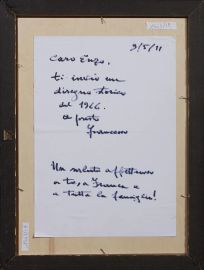 3/5/11
Caro Enzo,
ti invio un
disegno storico
del 1966.
a presto
Francesco
Un saluto affettuoso
a te, a Franca e
a tutta la famiglia!